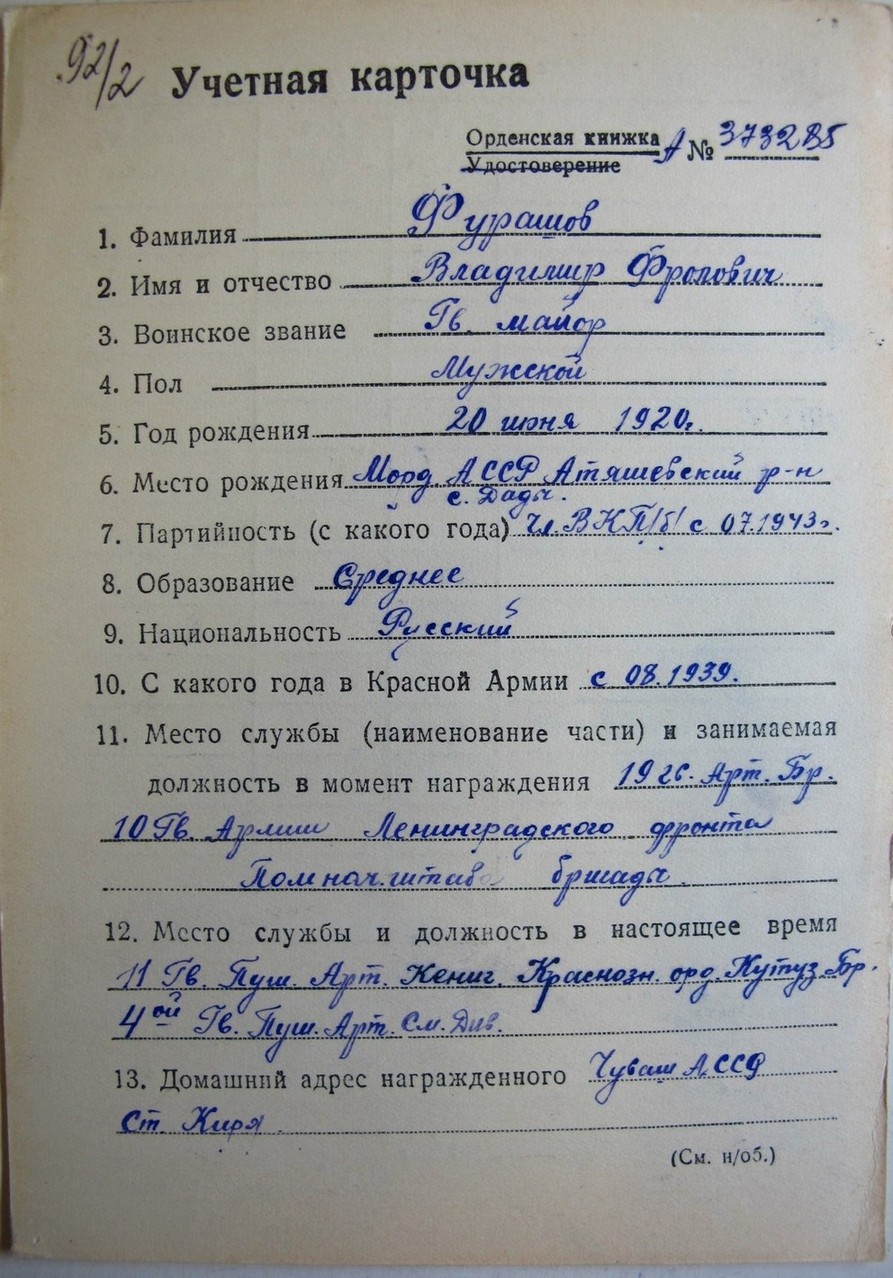 92/2 Учетная карточка
Орденская книжка А № 373285
Удостоверение
1. Фамилия Фурашов
2. Имя и отчество Владимир Фролович
3. Воинское звание Гв. майор
4. Пол Мужской
5. Год рождения 20 июня 1920г.
6. Место рождения Морд. АССР Атяшевский р-н
с. Дады.
7. Партийность (с какого года) Чл. ВКП/б/ с 07.1943г.
8. Образование Среднее
9. Национальность Русский
10. С какого года в Красной Армии с 08.1939.
11. Место службы (наименование части) и занимаемая
должность в момент награждения Арт. Бр.
10 Гв. Армии Ленинградского фронта
Пом нач. штаба бригады.
12. Место службы и должность в настоящее время
11 Гв. Пуш. Арт. Кениг. Краснозн. орд. Кутуз. Бр.
4ой Гв. Пуш. Арт. См. Див.
13. Домашний адрес награжденного Чуваш АССР
ст. Киря
(См. н/об.)